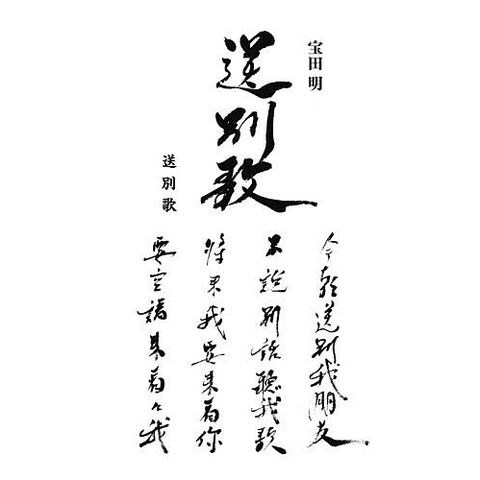 宝田 明
送别歌
送別歌
今朝送别我朋友
不說别話聽我歌
将来我要来看你
要空請来看々我